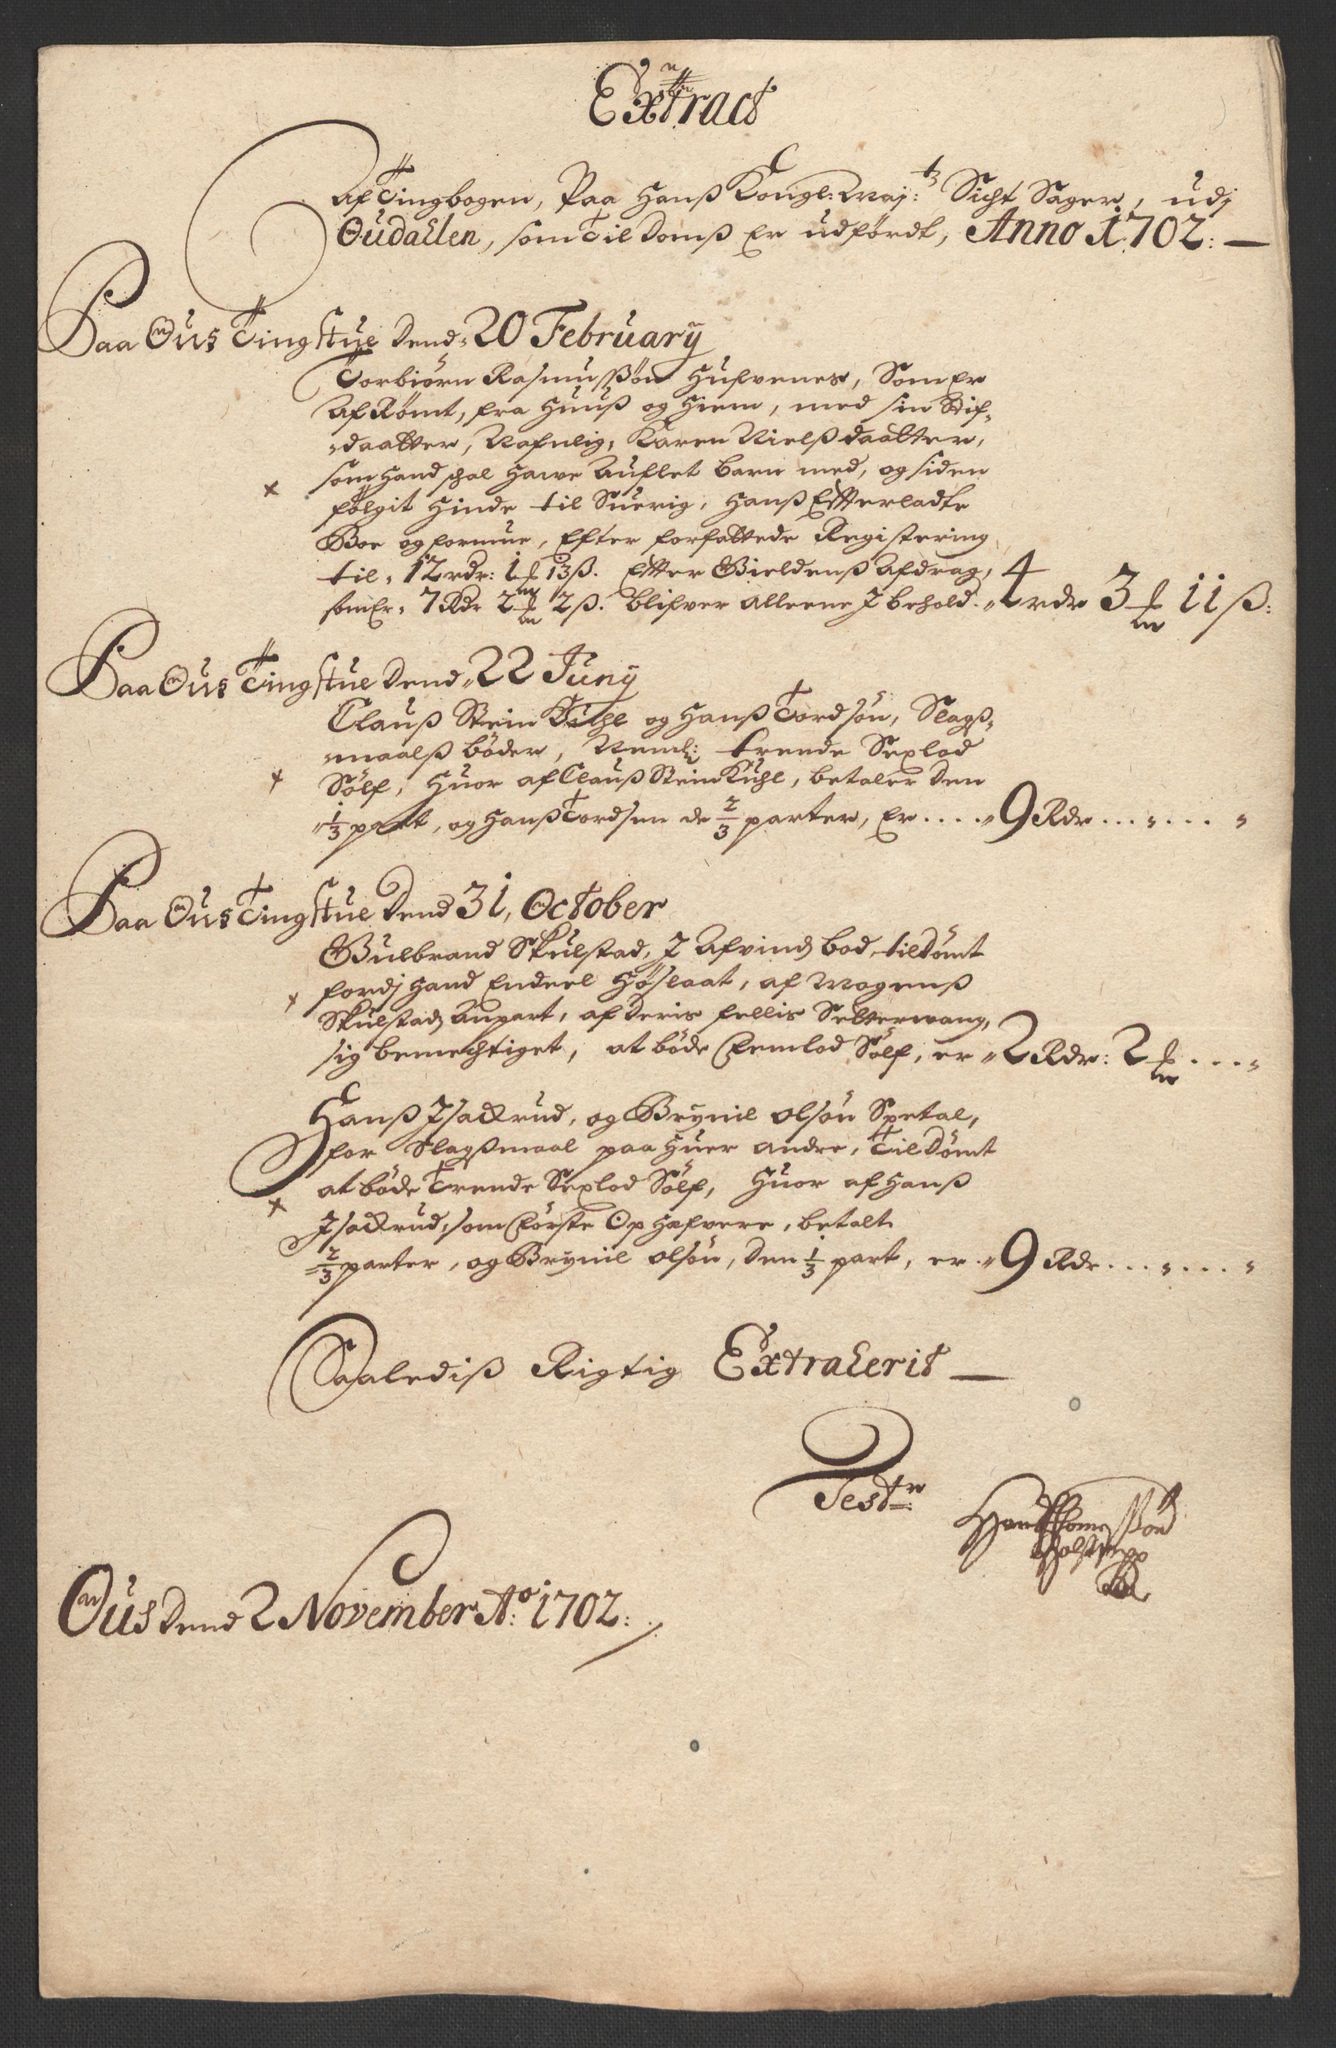 Extract
Af Tingbogen, Paa Hanß Kongl: Maj:ts Sicht Sager, udj
Oudallen, som Til Domß Er udførdt, Anno 1702:
Paa Ous Tingstue Dend 20 February
Torbiørn Rasmusßøn Hufvenes, Som Er
Af Rømt, fra Huuß og Hiem, med sin Stif-
daatter, Nafnlig, Karen Nielß daatter,
som Hand schal Hawe Auflet barn med, og siden
følgit Hinde til Suerig, Hanß Efterladte
Boe og formue, Efter forfattede Registering
til, 12 rdr: 1 ꝑ 13 ß. Efter Gieldenß Afdrag,
som Er, 7 Rdr 2 mꝑ 2 ß. blifver alleene J behold. 4 rdr 3 mꝑ 11 ß:
Paa Ous Tingstue Dend 22 Juny
Clauß Stein Kuhl og Hanß Tordsøn, Slagß-
maalß bøder, Neml: trende Sexlod
Sølf, Huor af Clauß Stein Kuhl, betaler den
1/3 part, og Hanß Tordsen de 2/3 parter, Er .... 9 Rdr ... „ ... „
Paa Ous Tingstue Dend 31, October
Gulbrand Skulstad, J Afvindz bod, til Dømt
fordj Hand Endeel Høslaat, af Mogenß
Skulstadz Anpart, af deris fellis Setterwang,
sig bemechtiget, at bøde femlod Sølf, er 2 Rdr: 2 mꝑ ... „
Hanß Jsackrud, og Brynil olsøn Spetal,
for Slagßmaal paa Huer andre, Til Dømt
at bøde Trende Sexlod Sølf, Huor af Hanß
Jsackrud, som første Op Hafvere, betalt
2/3 parter, og Brynil olsøn, den 1/3 part, er 9 Rdr ... „ ... „
Saalediß Rigtig Extraherit
Test:
Ous Dend 2 November Ao: 1702: